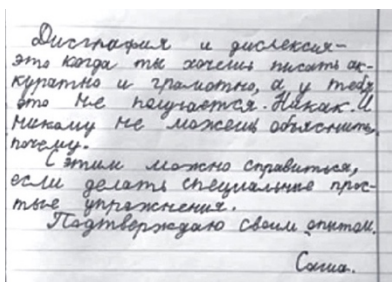 Дисграфия и дислексия-
это когда ты хочешь писать ак-
куратно и грамотно, а у тебя
это не получается. Никак. И
никому не можешь объяснить,
почему.
С этим можно справиться,
если делать специальные прос-
тые упражнения.
Подтверждаю своим опытом.
Саша.